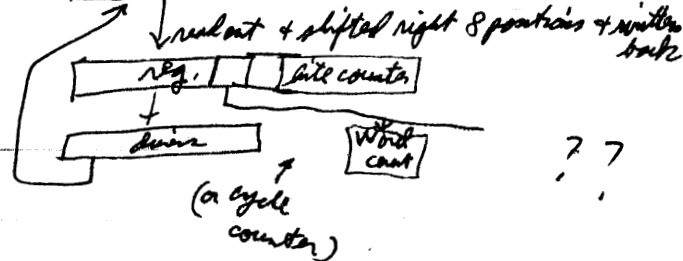 read out & shifted right 8 positions & written
back
reg. bite counter
drivers
Word
count
? ?
(or cycle
counter)